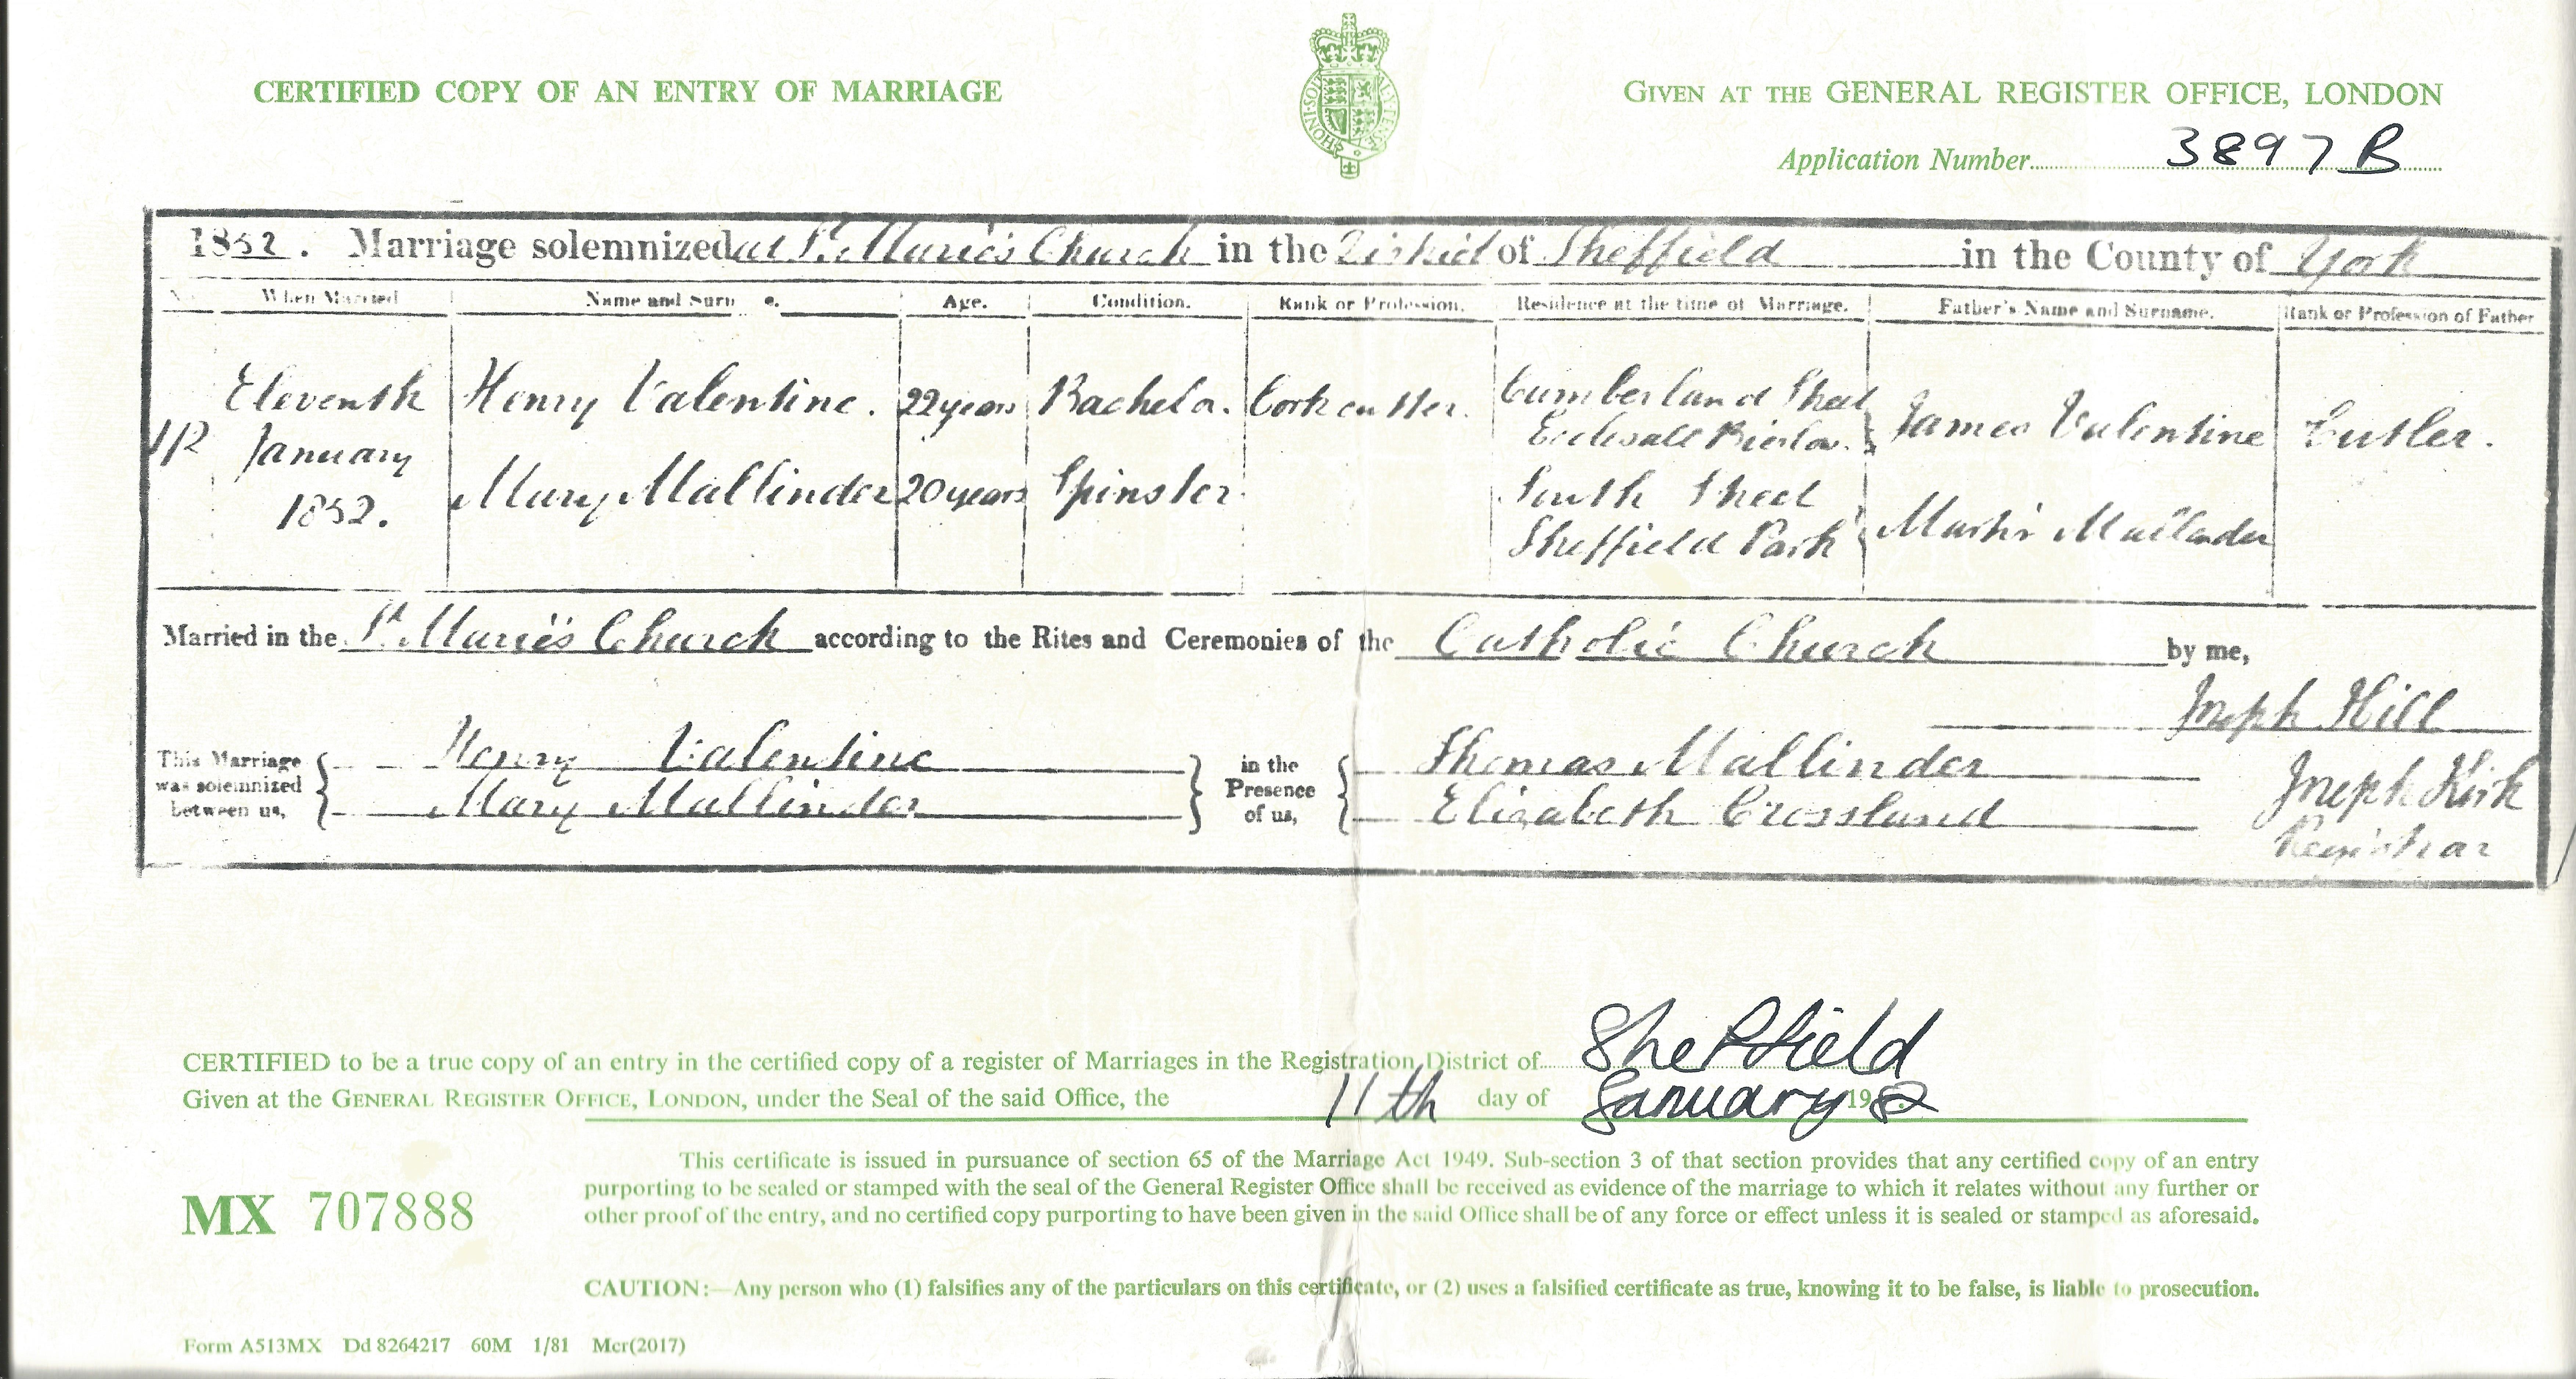 CERTIFIED COPY OF AN ENTRY OF MARRIAGE
GIVEN AT THE GENERAL REGISTER OFFICE, LONDON
Application Number 3897 B
1852. Marriage solemnized at St. Marie's Church in the District of Sheffield in the County of York
No. When Married Name and Surn e. Age. Condition. Rank or Profession. Residence at the time of Marriage. Father's Name and Surname. Rank or Profession of Father
Eleventh January 1852.
Henry Valentine. 22 years Bachelor. Cork cutter. Cumberland Street Ecclesall Bierlow. James Valentine Cutler.
Mary Mallinder 20 years Spinster South Street Sheffield Park Mallinder
Married in the St. Marie's Church according to the Rites and Ceremonies of the Catholic Church by me,
Joseph Hill
This Marriage was solemnized between us,
Henry Valentine
Mary Mallinder
in the Presence of us,
Thomas Mallinder
Elizabeth Crossland
Joseph Kirk
Registrar
CERTIFIED to be a true copy of an entry in the certified copy of a register of Marriages in the Registration District of Sheffield
Given at the GENERAL REGISTER OFFICE, LONDON, under the Seal of the said Office, the 11th day of January 1982
This certificate is issued in pursuance of section 65 of the Marriage Act 1949. Sub-section 3 of that section provides that any certified copy of an entry
purporting to be sealed or stamped with the seal of the General Register Office shall be received as evidence of the marriage to which it relates without any further or
other proof of the entry, and no certified copy purporting to have been given in the said Office shall be of any force or effect unless it is sealed or stamped as aforesaid.
MX 707888
CAUTION:—Any person who (1) falsifies any of the particulars on this certificate, or (2) uses a falsified certificate as true, knowing it to be false, is liable to prosecution.
Form A513MX Dd 8264217 60M 1/81 Mcr(2017)